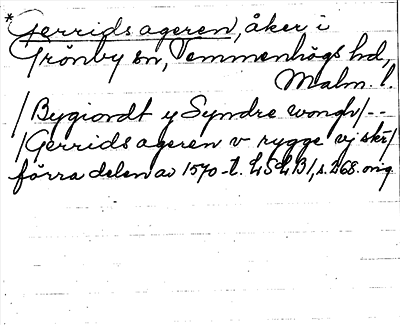 *Gerrids ageren, åker i
Grönby sn, Vemmenhögs hd,
Malm. l.
/Bygiordt y Syndre wongh/--
/Gerrids ageren v rygge vj skr/
förra delen av 1570-t. LSLB1, s. 268. orig